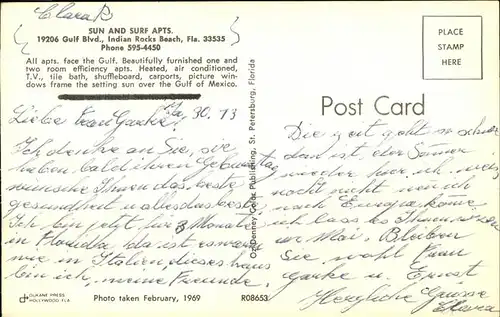 Clara R
SUN AND SURF APTS.
19206 Gulf Blvd., Indian Rocks Beach, Fla. 33535
Phone 595-4450
All apts. face the Gulf. Beautifully furnished one and
two room efficiency apts. Heated, air conditioned,
T.V., tile bath, shuffleboard, carports, picture win-
dows frame the setting sun over the Gulf of Mexico.
30. 73
Liebe Frau
Ich denke an Sie, sie
haben bald ihren Geburtstag
wünsche Ihnen das beste
gesundheit u. alles das beste
Ich bin jetzt für 3 Monate
in Florida, da ist es warm
wie in Italien, dieses haus
bin ich, meine Freunde,
DUKANE PRESS
HOLLYWOOD, FLA.
Photo taken February, 1969
R08653
Denney Color Publishing, St. Petersburg, Florida
PLACE
STAMP
HERE
Post Card
Die zeit geht so schnell
dann ist der Sommer
wieder hier, ich weis
noch nicht wan ich
nach Europa komme
ich lass es Ihnen wissen
Mai. Bleiben
Sie wohl Frau
u. Ernst
Herzliche Grüsse